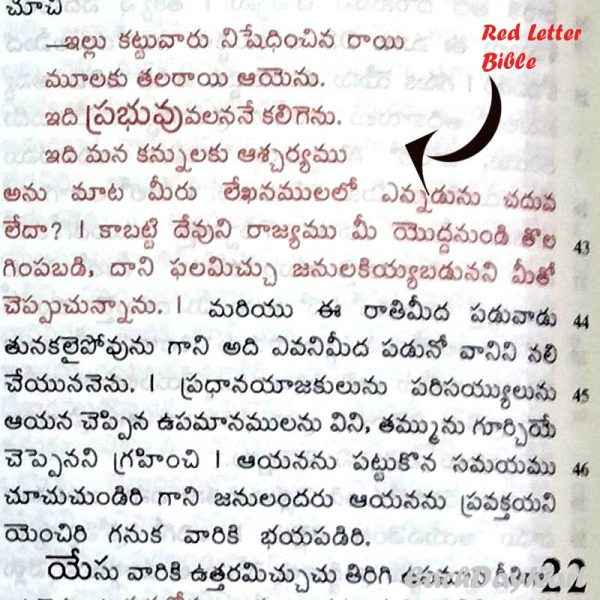 చూచి
—ఇల్లు కట్టువారు నిషేధించిన రాయి
Red Letter
Bible
మూలకు తలరాయి ఆయెను.
ఇది ప్రభువువలననే కలిగెను.
ఇది మన కన్నులకు ఆశ్చర్యము
అను మాట మీరు లేఖనములలో ఎన్నడును చదువ
లేదా? । కాబట్టి దేవుని రాజ్యము మీ యొద్దనుండి తొల 43
గింపబడి, దాని ఫలమిచ్చు జనులకియ్యబడునని మీతో
చెప్పుచున్నాను. । మరియు ఈ రాతిమీద పడువాడు 44
తునకలైపోవును గాని అది ఎవనిమీద పడునో వానిని నలి
చేయుననెను. । ప్రధానయాజకులును పరిసయ్యులును 45
ఆయన చెప్పిన ఉపమానములను విని, తమ్మును గూర్చియే
చెప్పెనని గ్రహించి । ఆయనను పట్టుకొన సమయము 46
చూచుచుండిరి గాని జనులందరు ఆయనను ప్రవక్తయని
యెంచిరి గనుక వారికి భయపడిరి.
యేసు వారికి ఉత్తరమిచ్చుచు తిరిగి 22